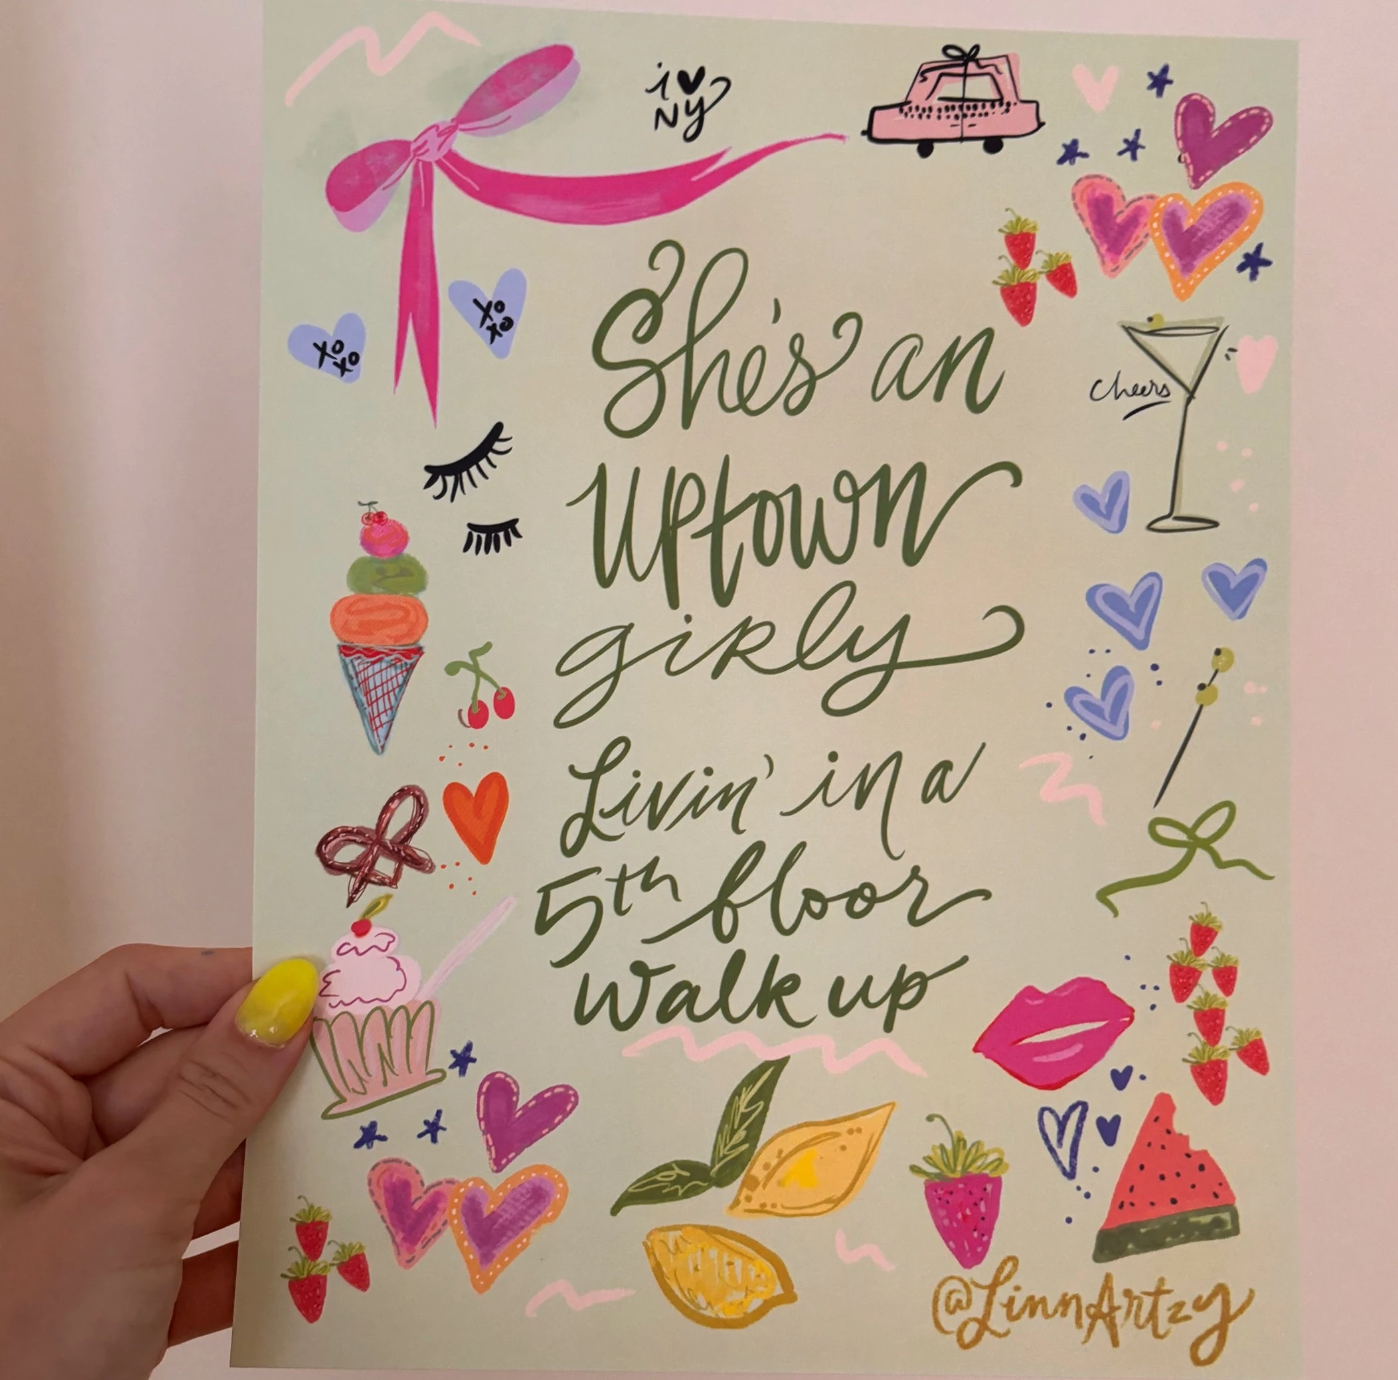 i ♥
NY
XO
XO
XO
XO
She's an
Uptown
girly
cheers
Livin' in a
5th floor
walk up
@LinnArtzy